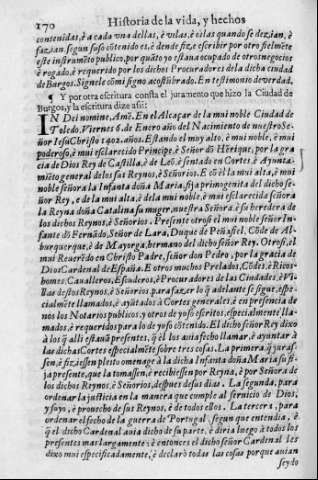 170 Historia de la vida, y hechos
contenidas, è a cada vna dellas, è vilas, è oilas quando se dezian, è
fazian, segun suso côtenido es, è dende fize escribir por otro fielmète
este instrumèto publico, por quâto yo estaua ocupado de otros negocios
è rogado, è requerido por los dichos Procuradores de la dicha ciudad
de Burgos. Signele cò mi signo acostûbrado. En testimonio de verdad.
¶ Y por otra escritura consta el juramento que hizo la Ciudad de
Burgos, y la escritura dize assi:
IN Dei nomine, Amè. En el Alcaçar de la mui noble Ciudad de
Toledo, Viernes 6. de Enero año del Nacimiento de nuestro Se-
ñor Iesu Christo 1402. años. Estando el muy alto, è mui noble, è mui
poderoso, è mui esclarecido Principe, è Señor dô Hèrique, por la gra
cia de Dios Rey de Castilla, è de Leô, è sentado en Cortes è Ayunta-
mièto general de los sus Reynos, è Señorios. E cô èl la mui alta, è mui
noble señora la Infanta doña Maria, fija primogenita del dicho se-
ñor Rey, e de la mui alta, è de la mui noble, è mui esclarecida señora
la Reyna doña Catalina su muger, nuestra Señora, è su heredera de
los dichos Reynos, è Señorios. Presente otrosi el mui noble señor In-
fante dô Fernàdo, Señor de Lara, Duque de Peñafiel, Côde de Al-
burquerque, è de Mayorga, hermano del dicho señor Rey. Otrosi, el
mui Reuerèdo en Christo Padre, señor don Pedro, por la gracia de
Dios Cardenal de España. E otros muchos Prelados, Côdes, è Ricos
homes, Caualleros, Escuderos, è Procuradores de las Ciudades, è Vi-
llas de stos Reynos, è Señorios, para fazer lo q̃ adelante se sigue, espe-
cialmète llamados, è ayûtados à Cortes generales, è en presencia de
nos los Notarios publicos, y otros de yuso escritos, especialmente lla-
mados, è requeridos para lo de yuso côtenido. El dicho señor Rey dixo
à los q̃ alli estauâ presentes, q̃ èl los auia fecho llamar, è ayuntar à
las dichas Cortes especialmète sobre tres cosas. La primera q̃ juras-
sen, è fiziessen pleito omenage à la dicha Infanta doña Maria su fi-
ja presente, que la tomassen, è recibiessen por Reyna, è por Señora de
los dichos Reynos, è Señorios, despues de sus dias. La segunda, para
ordenar la justicia en la manera que cumple al seruicio de Dios,
y suyo, è prouecho de sus Reynos, è de todos ellos. La tercera, para
ordenar el fecho de la guerra de Portugal, segun que entendia, è
q̃ el dicho Cardenal auia dicho de su parte, è diria luego à todos los
presentes mas largamente; è entonces el dicho señor Cardenal les
dixo mui especificadamente, è declarò todas las cosas por que auian
seydo